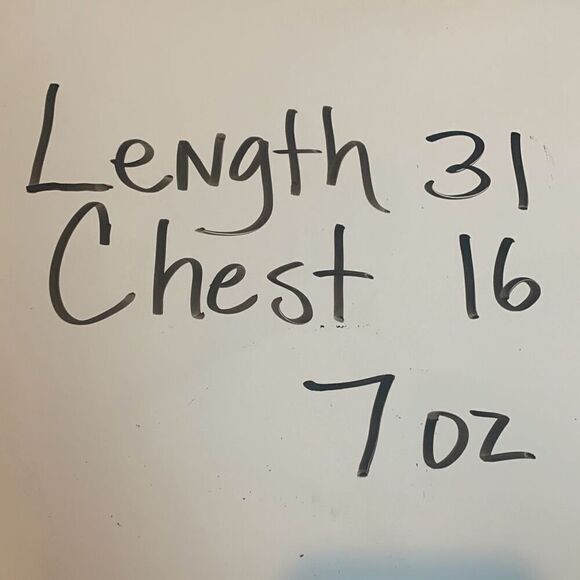 Length 31
Chest 16
7 oz